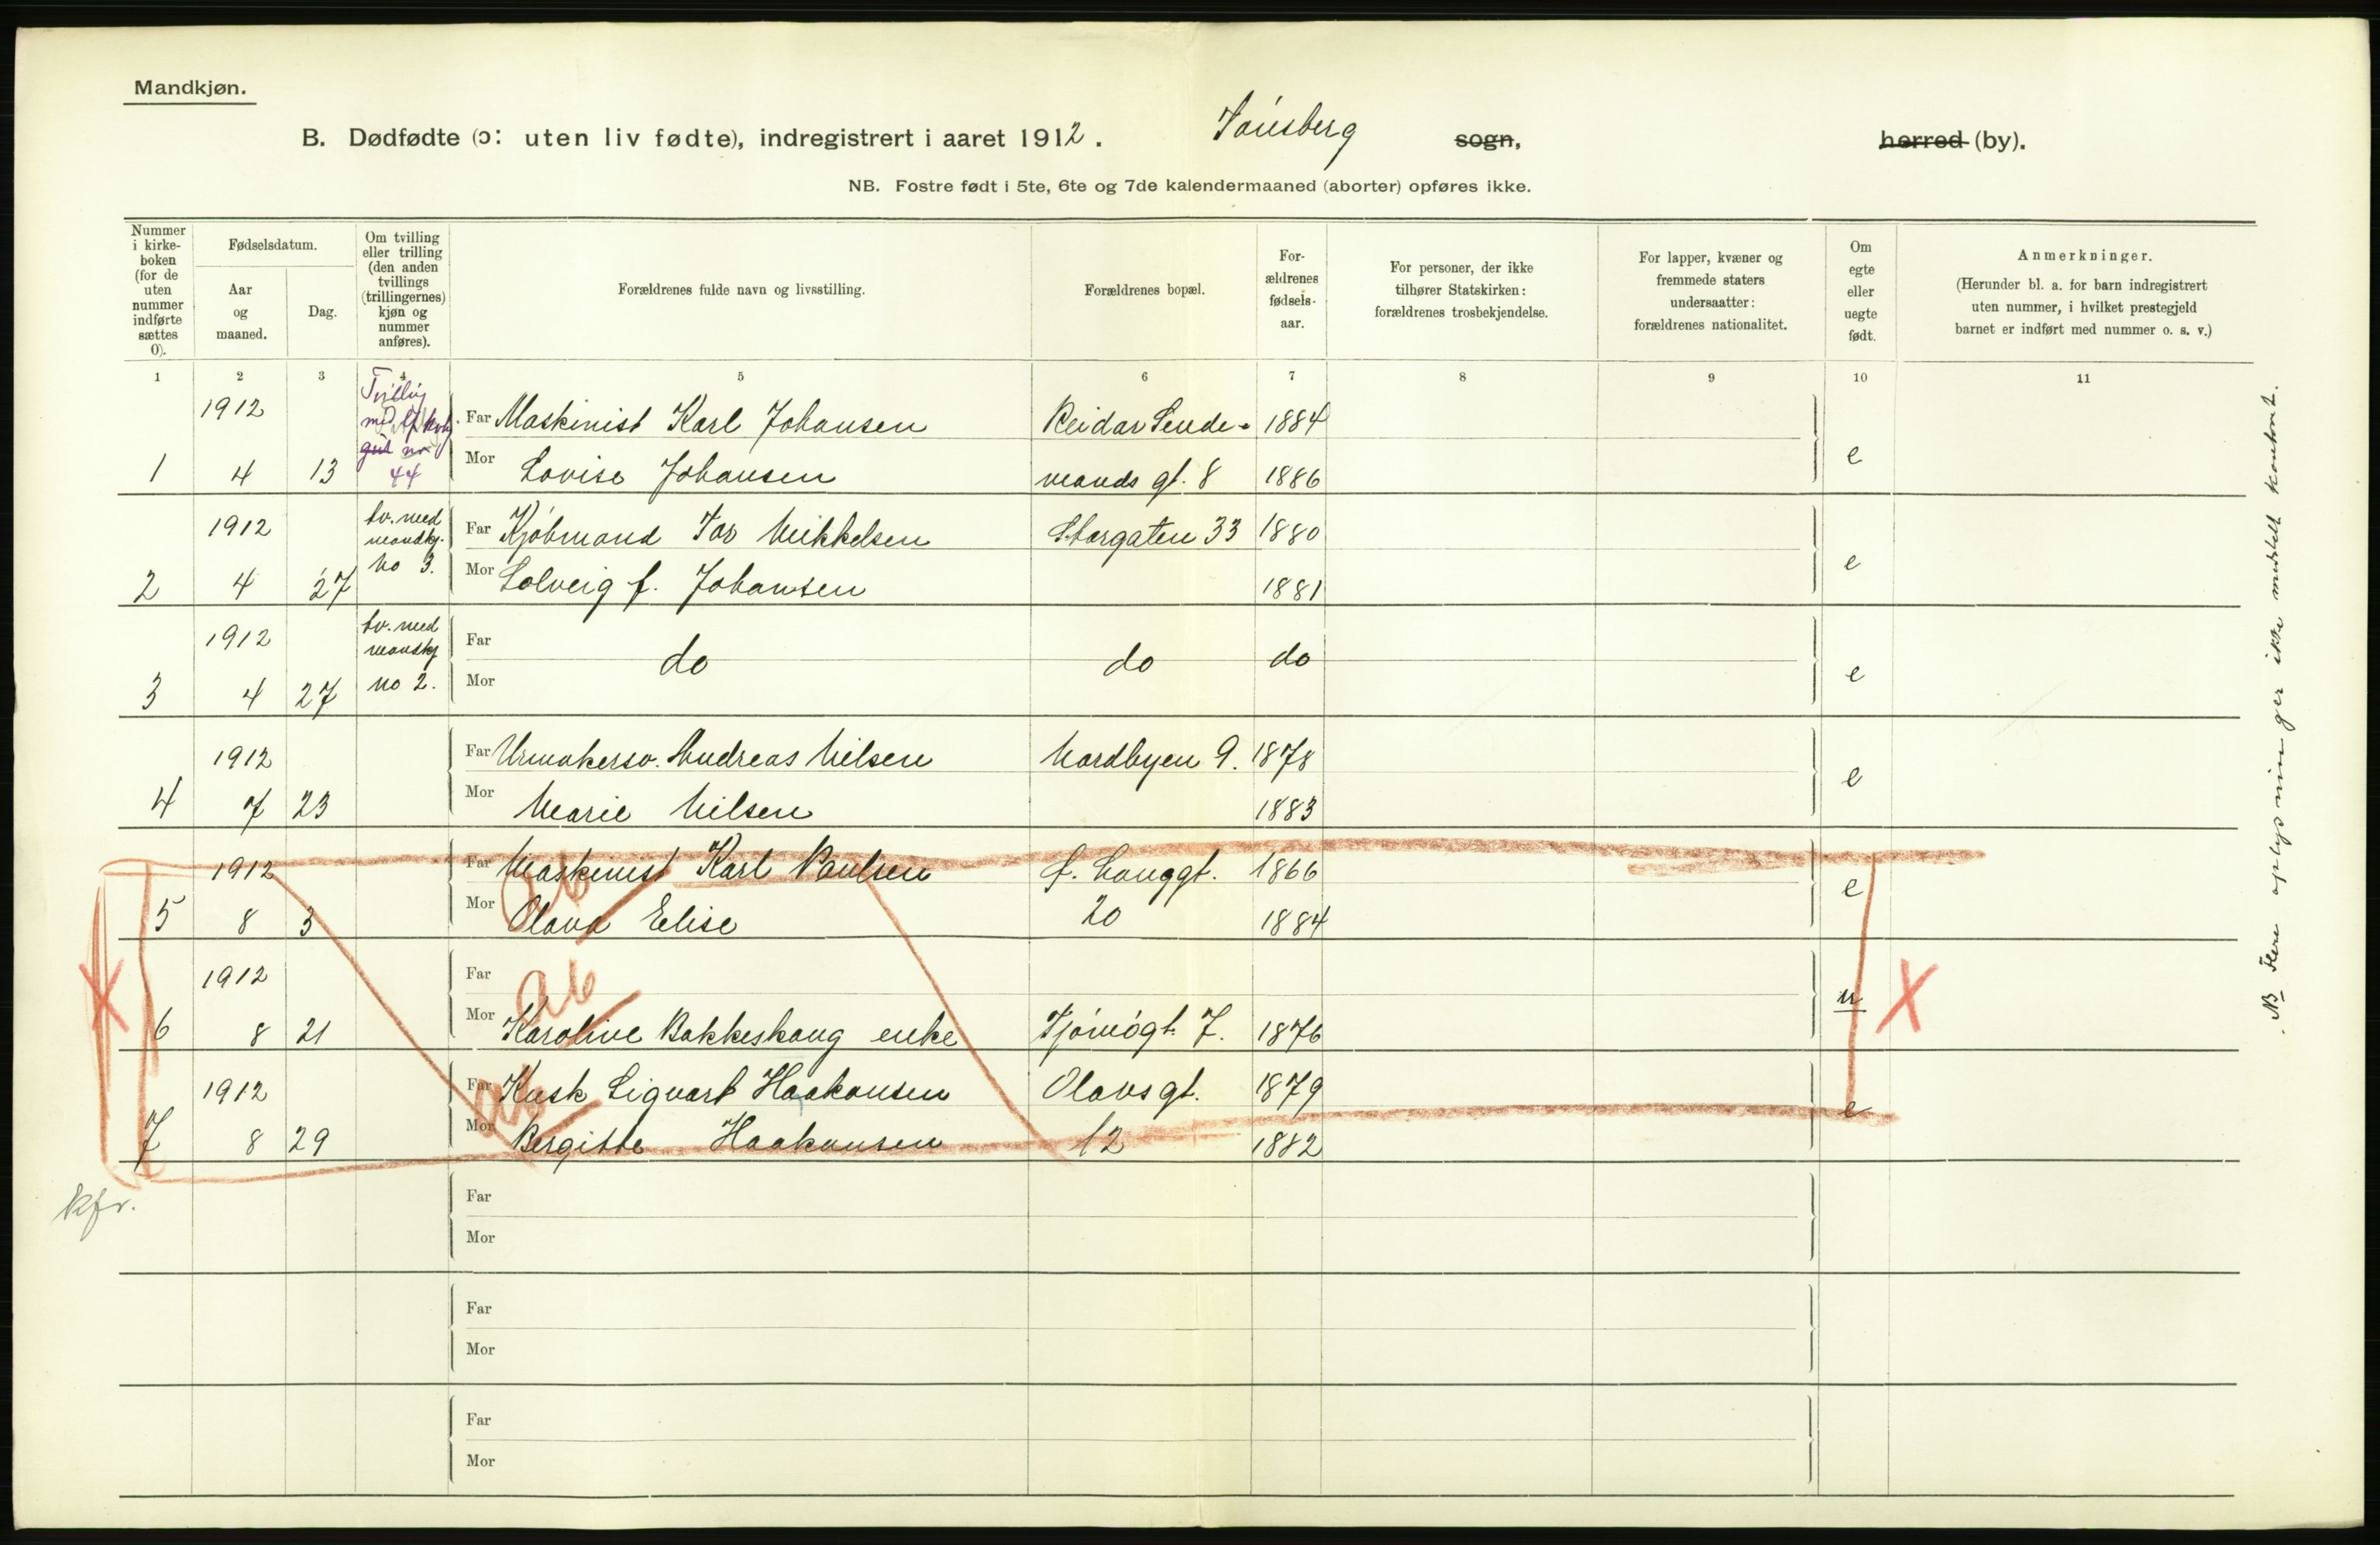 Mandkjøn.
B. Dødfødte (ɔ: uten liv fødte), indregistrert i aaret 1912. Tønsberg sogn, herred (by).
NB. Fostre født i 5te, 6te og 7de kalendermaaned (aborter) opføres ikke.
Nummer i kirke-boken (for de uten nummer indførte sættes 0).
Fødselsdatum.
Aar og maaned.
Dag.
Om tvilling eller trilling (den anden tvillings (trillingernes) kjøn og nummer anføres).
Forældrenes fulde navn og livsstilling.
Forældrenes bopæl.
For-ældrenes fødsels-aar.
For personer, der ikke tilhører Statskirken: forældrenes trosbekjendelse.
For lapper, kvæner og fremmede staters undersaatter: forældrenes nationalitet.
Om egte eller uegte født.
Anmerkninger.
(Herunder bl. a. for barn indregistrert uten nummer, i hvilket prestegjeld barnet er indført med nummer o. s. v.)
1 2 3 4 5 6 7 8 9 10 11
1912 Tvilling med Far Maskinist Karl Johansen Reidar Sende- 1884
1 4 13 no 44 Mor Lovise Johansen mands gt. 8 1886 e
1912 tv. med mandkj. Far Kjøbmand Tor Mikkelsen Storgaten 33 1880
2 4 27 No 3. Mor Solveig f. Johansen 1881 e
1912 tv. med mandkj Far
do do do
3 4 27 No 2. Mor e
1912 Far Urmakersv. Andreas Nilsen Nordbyen 9. 1878
4 7 23 Mor Marie Nilsen 1883 e
1912 Far Maskinist Karl Paulsen f. Langgt. 1866
5 8 3 Mor Olava Elise 20 1884 e
Ab
1912 Far
6 8 21 Mor Karoline Bakkeskaug enke Tjømøgt. 7. 1876 u X
X
Ab
1912 Far Kusk Sigvart Haakonsen Olavsgt. 1879
7 8 29 Mor Bergitte Haakonsen 12 1882 e
Ab
kfr.
Far
Mor
Far
Mor
Far
Mor
NB Flere oplysninger ikke meddelt kontoret.